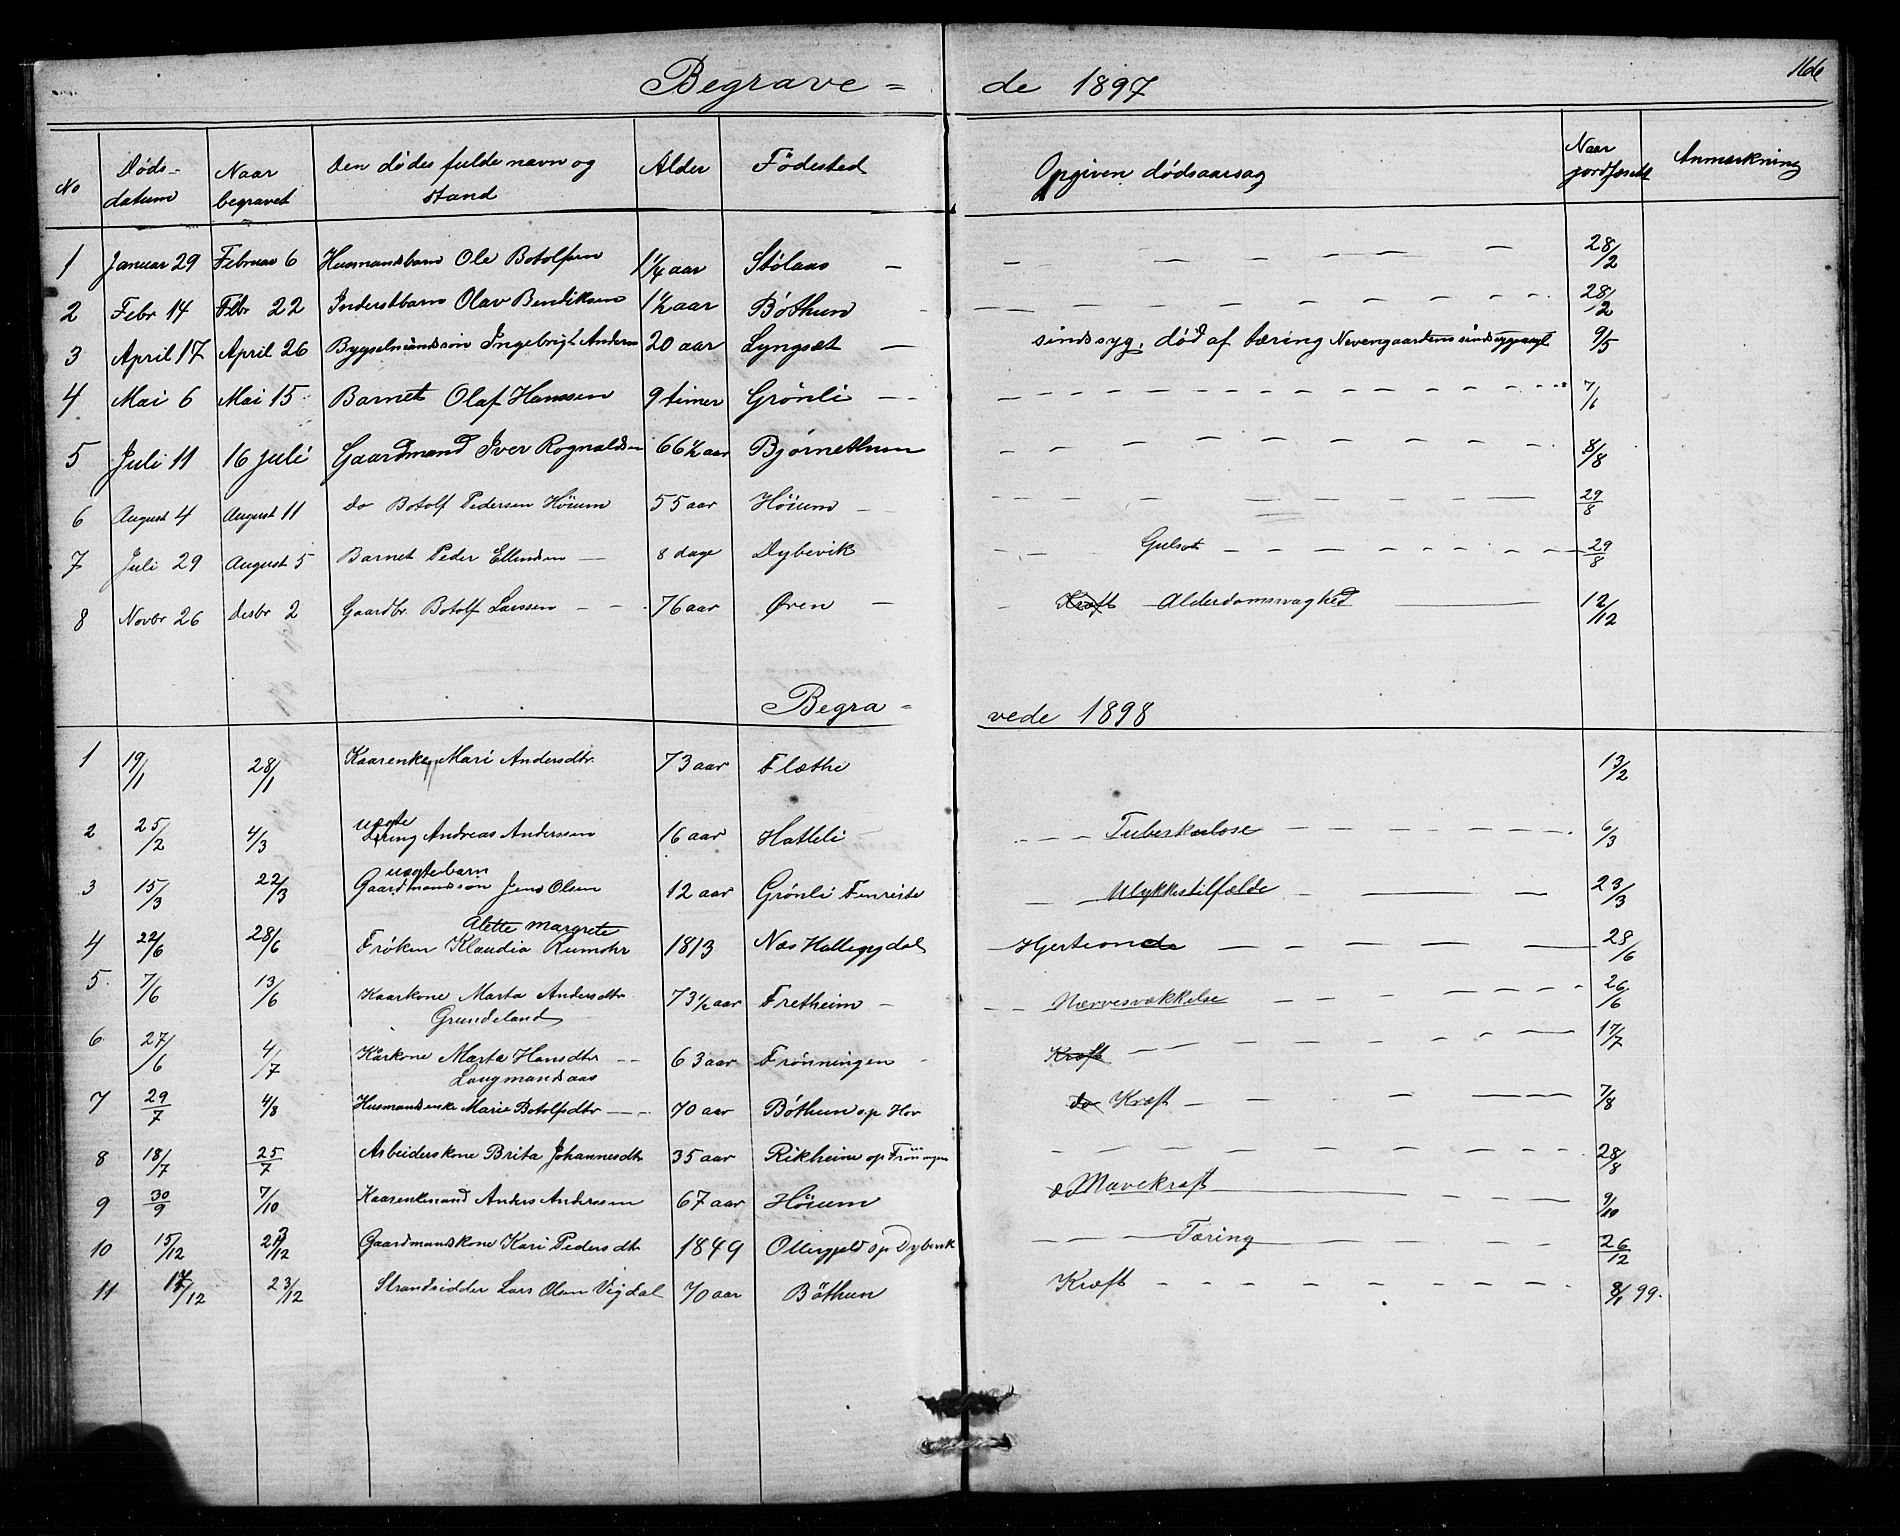 Begrave = de 1897
No | Døds-datum | Naar begravet | Den dødes fulde navn og stand | Alder | Födested | Opgiven dödsaarsag | Naar jordfæstet | Anmærkning
1 | Januar 29 | Februar 6 | Husmandsbarn Ole Botolfsen | 1 1/4 aar | Stölaas | — | 28/2
2 | Febr 14 | Febr 22 | Inderstbarn Olav Bendiksen | 1 1/2 aar | Böthun | — | 28/2
3 | April 17 | April 26 | Bygselmandssön Ingebrigt Andersen | 20 aar | Lyngsæt | sindssyg, död af tæring Nevengaardens sindssygeasyl | 9/5
4 | Mai 6 | Mai 15 | Barnet Olaf Hanssen | 9 timer | Grönli | — | 7/6
5 | Juli 11 | 16 juli | Gaardmand Iver Rognaldsen | 66 1/2 aar | Bjørnethun | — | 8/8
6 | August 4 | August 11 | do Botolf Pedersen Höium | 55 aar | Höium | — | 29/8
7 | Juli 29 | August 5 | Barnet Peder Ellendsen | 8 dage | Dybevik | Gulsot | 29/8
8 | Novbr 26 | Desbr 2 | Gaardbr. Botolf Larssen | 76 aar | Øren | Kræft Alderdomssvaghed | 12/12
Begra = vede 1898
1 | 19/1 | 28/1 | Kaarenke Mari Andersdtr. | 73 aar | Flæthe | 13/2
2 | 25/2 | 4/3 | ugifte Andreas Anderssen | 16 aar | Hatleli | Tuberkulose | 6/3
3 | 15/3 | 22/3 | Gaardmandssön Jens Olsen | 12 aar | Grönli | Ulykkestilfælde | 23/3
4 | 22/6 | 28/6 | Alette Margrete
Fröken Klaudia Rumohr | 1813 | Næs Hallingdal | Hjerteonde | 28/6
5 | 7/6 | 13/6 | Kaarkone Marta Andersdtr
Grundeland | 73 1/2 aar | Fretheim | Nærvesvækkelse | 26/6
6 | 27/6 | 4/7 | Kårkone Marta Hansdtr
Laugmandsaas | 63 aar | Frönningen | Kræft | 17/7
7 | 29/7 | 4/8 | Husmandsenke Marie Botolfsdtr | 70 aar | Böthun op Hov | do Kræft | 7/8
8 | 18/7 | 25/7 | Arbeiderskone Brita Johannesdtr | 35 aar | Rikheim op | — | 28/8
9 | 30/9 | 7/10 | Kaarenkemand Anders Anderssen | 67 aar | Höium | Mavekræft | 9/10
10 | 15/12 | /12 | Gaardmandskone Kari Pedersdtr | 1849 | op Dybevik | Tæring | 26/12
11 | 17/12 | 23/12 | Strandsidder Lars Olsen Vigdal | 70 aar | Böthun | Kræft | 8/1 99.